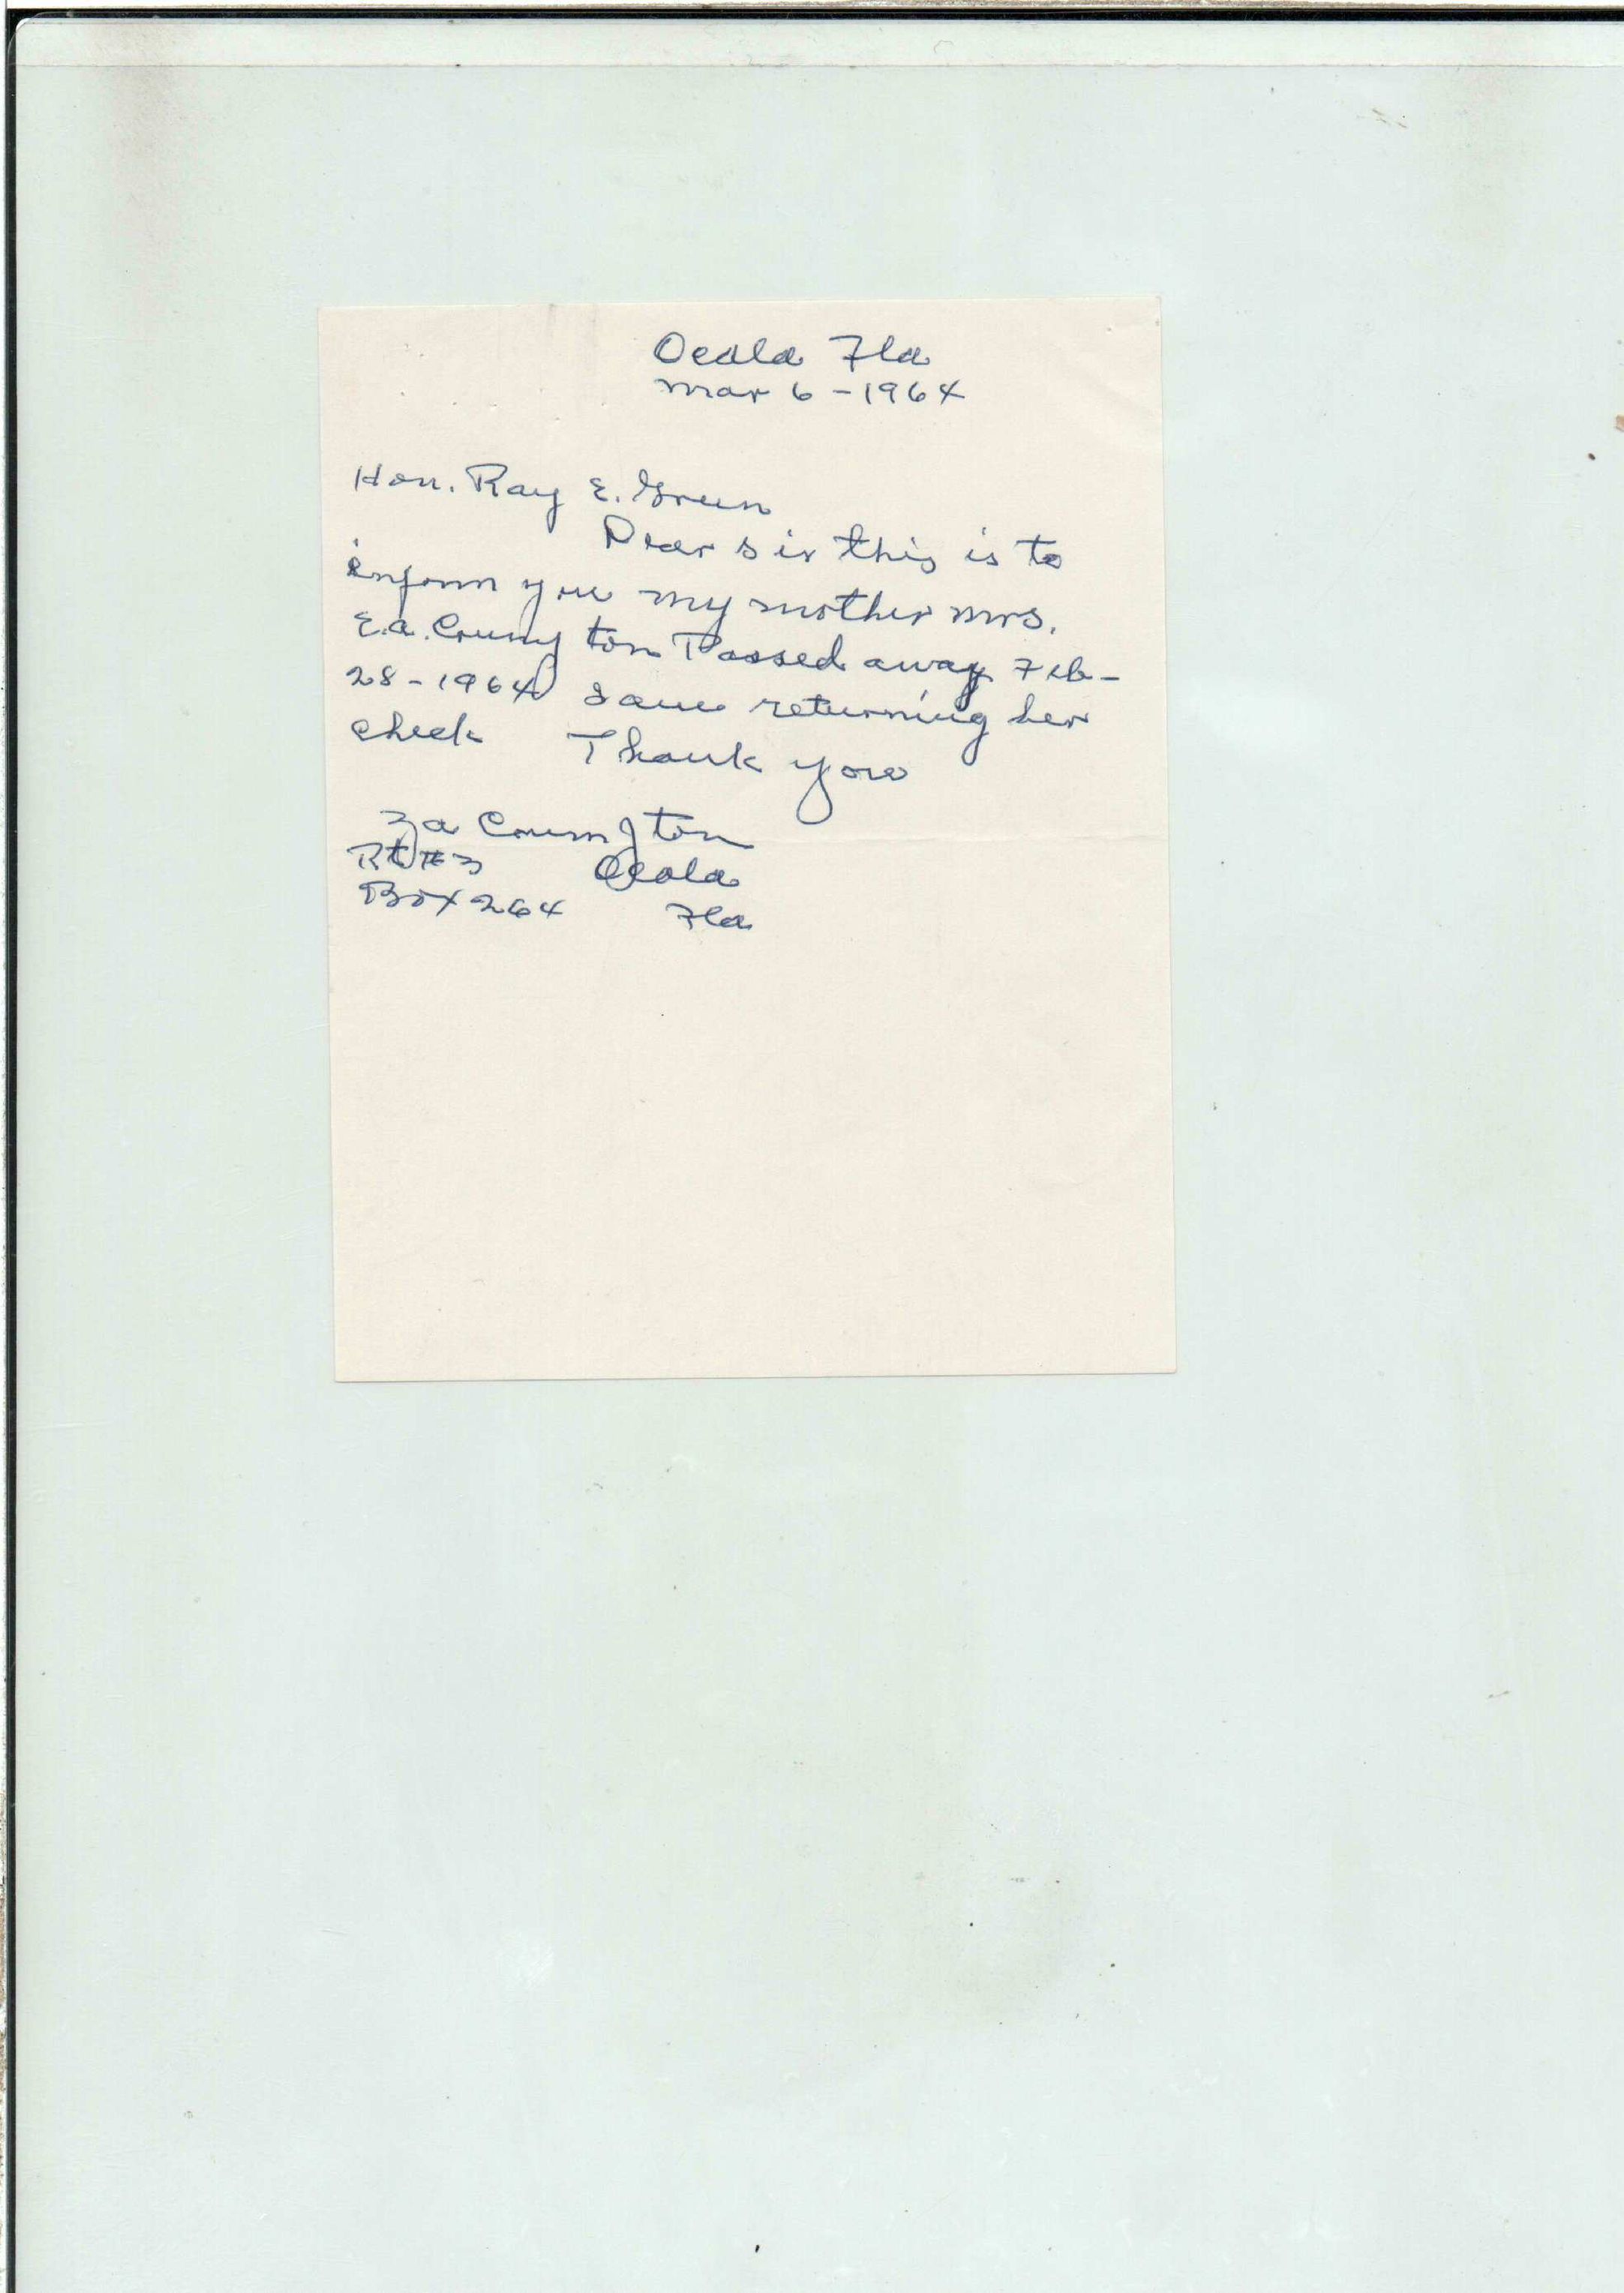 Ocala Fla
Mar 6 - 1964
Hon. Ray E. Green
Dear sir this is to
inform you my mother Mrs.
E.A. ton Passed away Feb -
28 - 1964 I am returning her
check Thank you
Rt #3 Ocala
Box 264 Fla